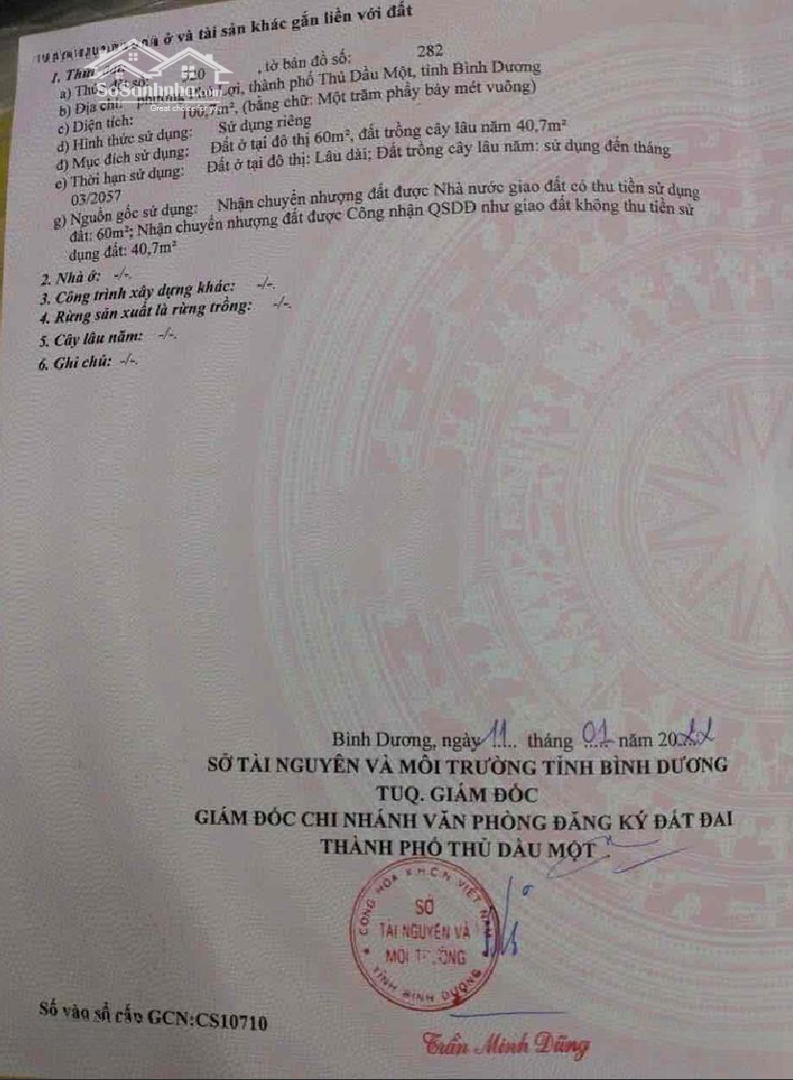 ở và tài sản khác gắn liền với đất
1. Thửa đất:
a) Thửa đất số: 520 , tờ bản đồ số: 282
b) Địa chỉ: phường Phú Lợi, thành phố Thủ Dầu Một, tỉnh Bình Dương
c) Diện tích: 100,7m², (bằng chữ: Một trăm phẩy bảy mét vuông)
d) Hình thức sử dụng: Sử dụng riêng
đ) Mục đích sử dụng: Đất ở tại đô thị 60m², đất trồng cây lâu năm 40,7m²
e) Thời hạn sử dụng: Đất ở tại đô thị: Lâu dài; Đất trồng cây lâu năm: sử dụng đến tháng
03/2057
g) Nguồn gốc sử dụng: Nhận chuyển nhượng đất được Nhà nước giao đất có thu tiền sử dụng
đất: 60m²; Nhận chuyển nhượng đất được Công nhận QSDĐ như giao đất không thu tiền sử
dụng đất: 40,7m²
2. Nhà ở: -/-.
3. Công trình xây dựng khác: -/-.
4. Rừng sản xuất là rừng trồng: -/-.
5. Cây lâu năm: -/-.
6. Ghi chú: -/-.
SoSanhNha.com
Great choice for
Bình Dương, ngày 11 tháng 01 năm 2022
SỞ TÀI NGUYÊN VÀ MÔI TRƯỜNG TỈNH BÌNH DƯƠNG
TUQ. GIÁM ĐỐC
GIÁM ĐỐC CHI NHÁNH VĂN PHÒNG ĐĂNG KÝ ĐẤT ĐAI
THÀNH PHỐ THỦ DẦU MỘT
CỘNG HÒA X.H.C.N VIỆT NAM
SỞ
TÀI NGUYÊN VÀ
MÔI TRƯỜNG
TỈNH BÌNH DƯƠNG
Số vào sổ cấp GCN:CS10710
Trần Minh Dũng